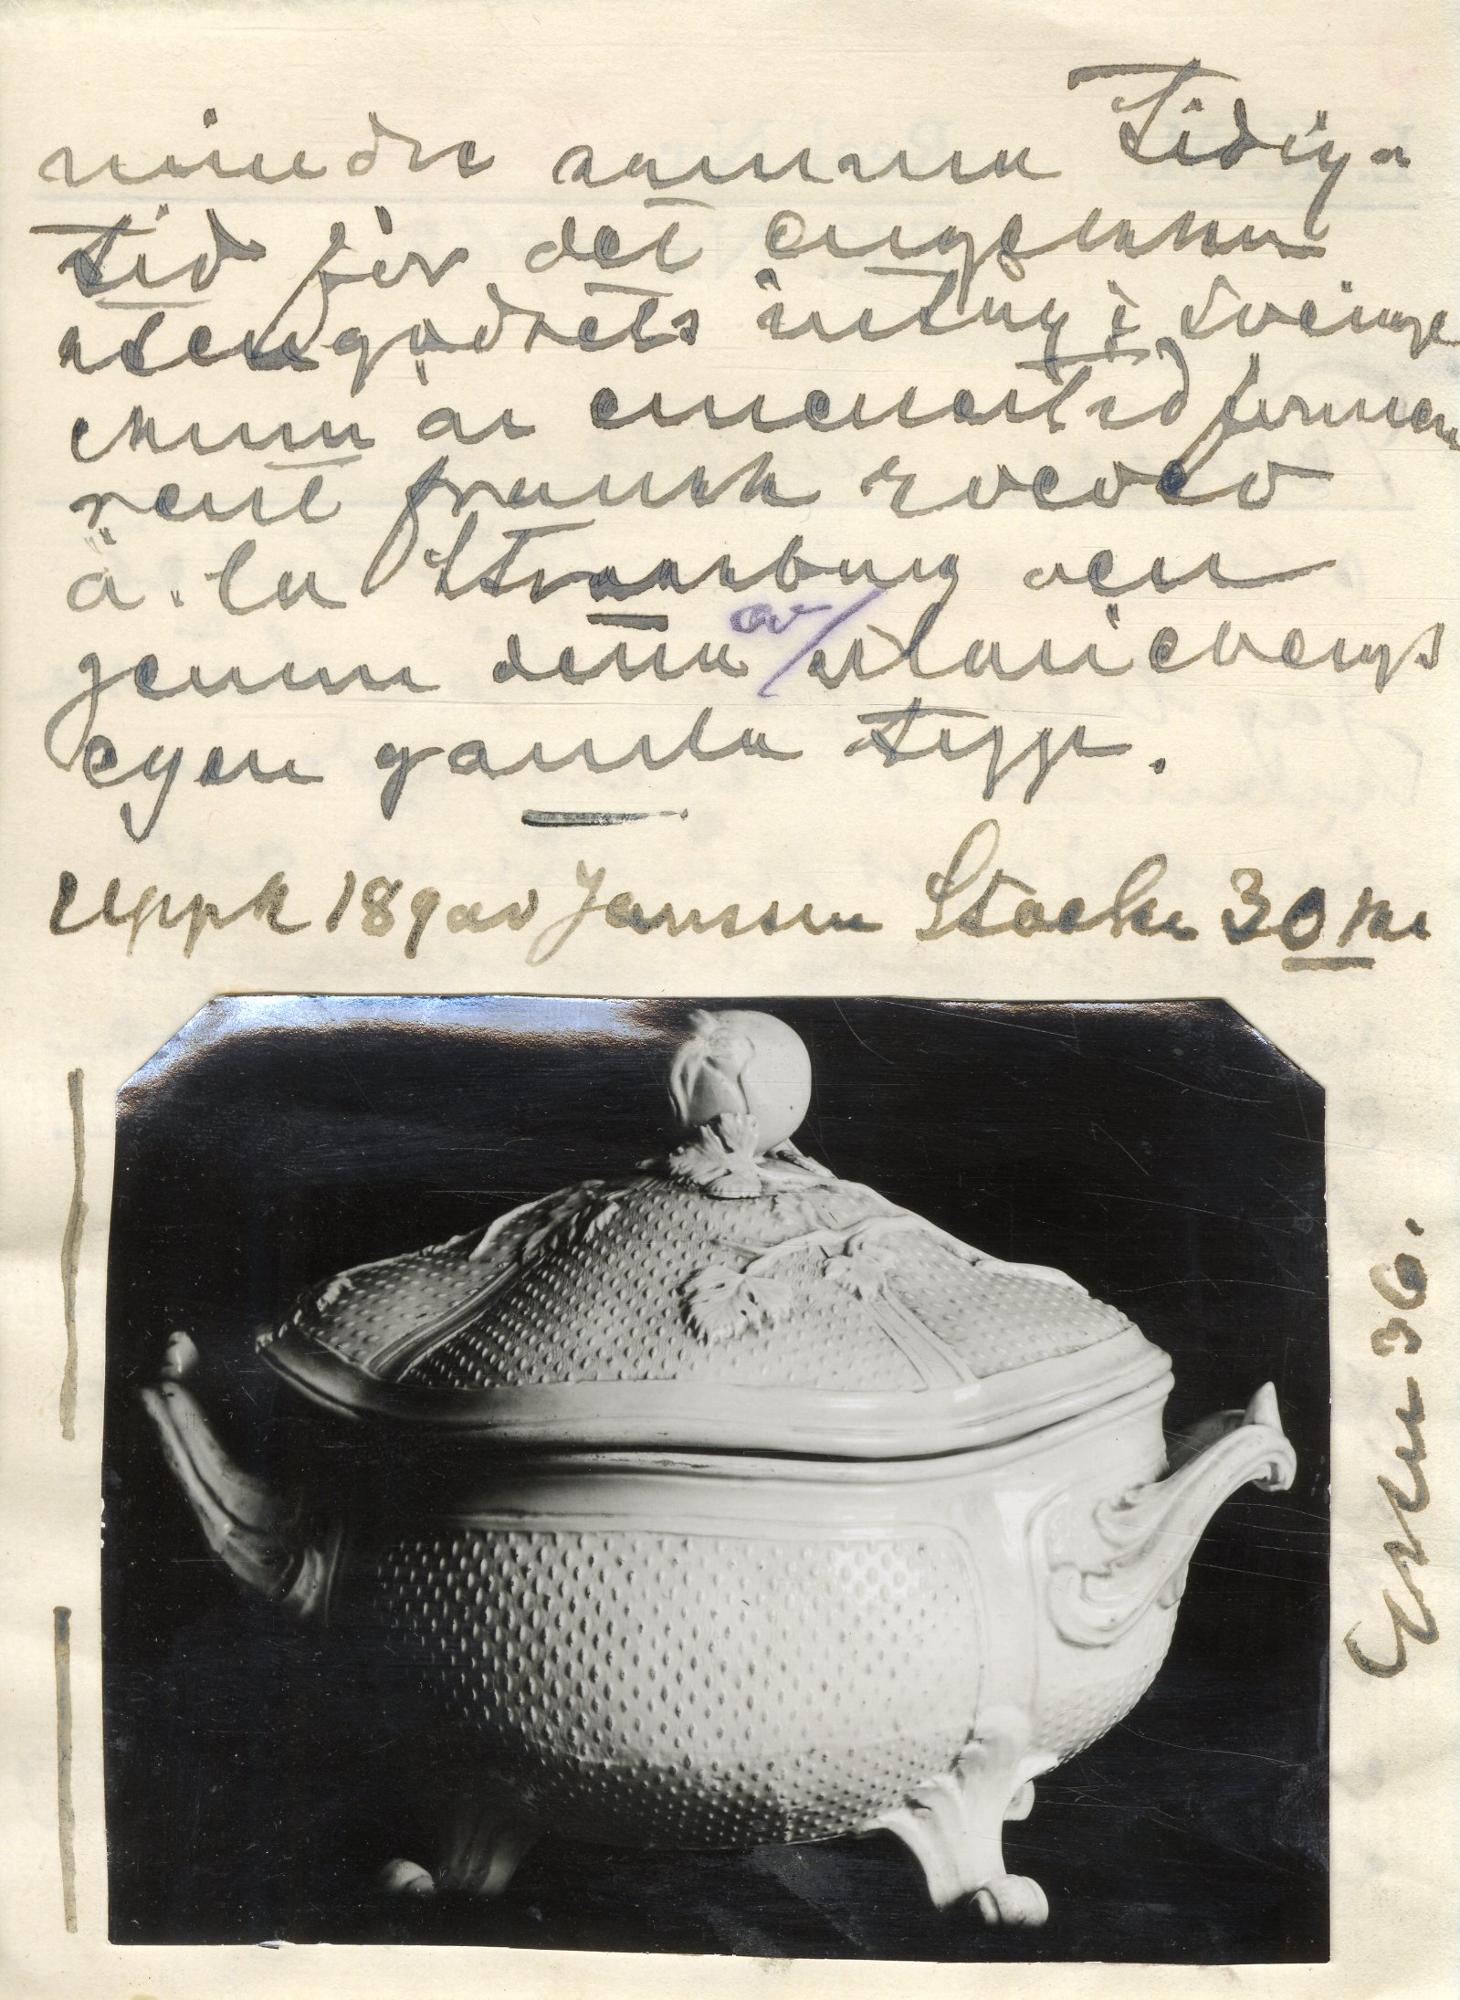 mindre samma tidiga
tid för det engelska
stengodsets intåg i Sverige
emun är emellertid formen
rent fransk rococo
à la Strassburg och
genom denna av Mariebergs
egen gamla typ.
Uppk 189 av Jansson Stockh 30 Kr
36.